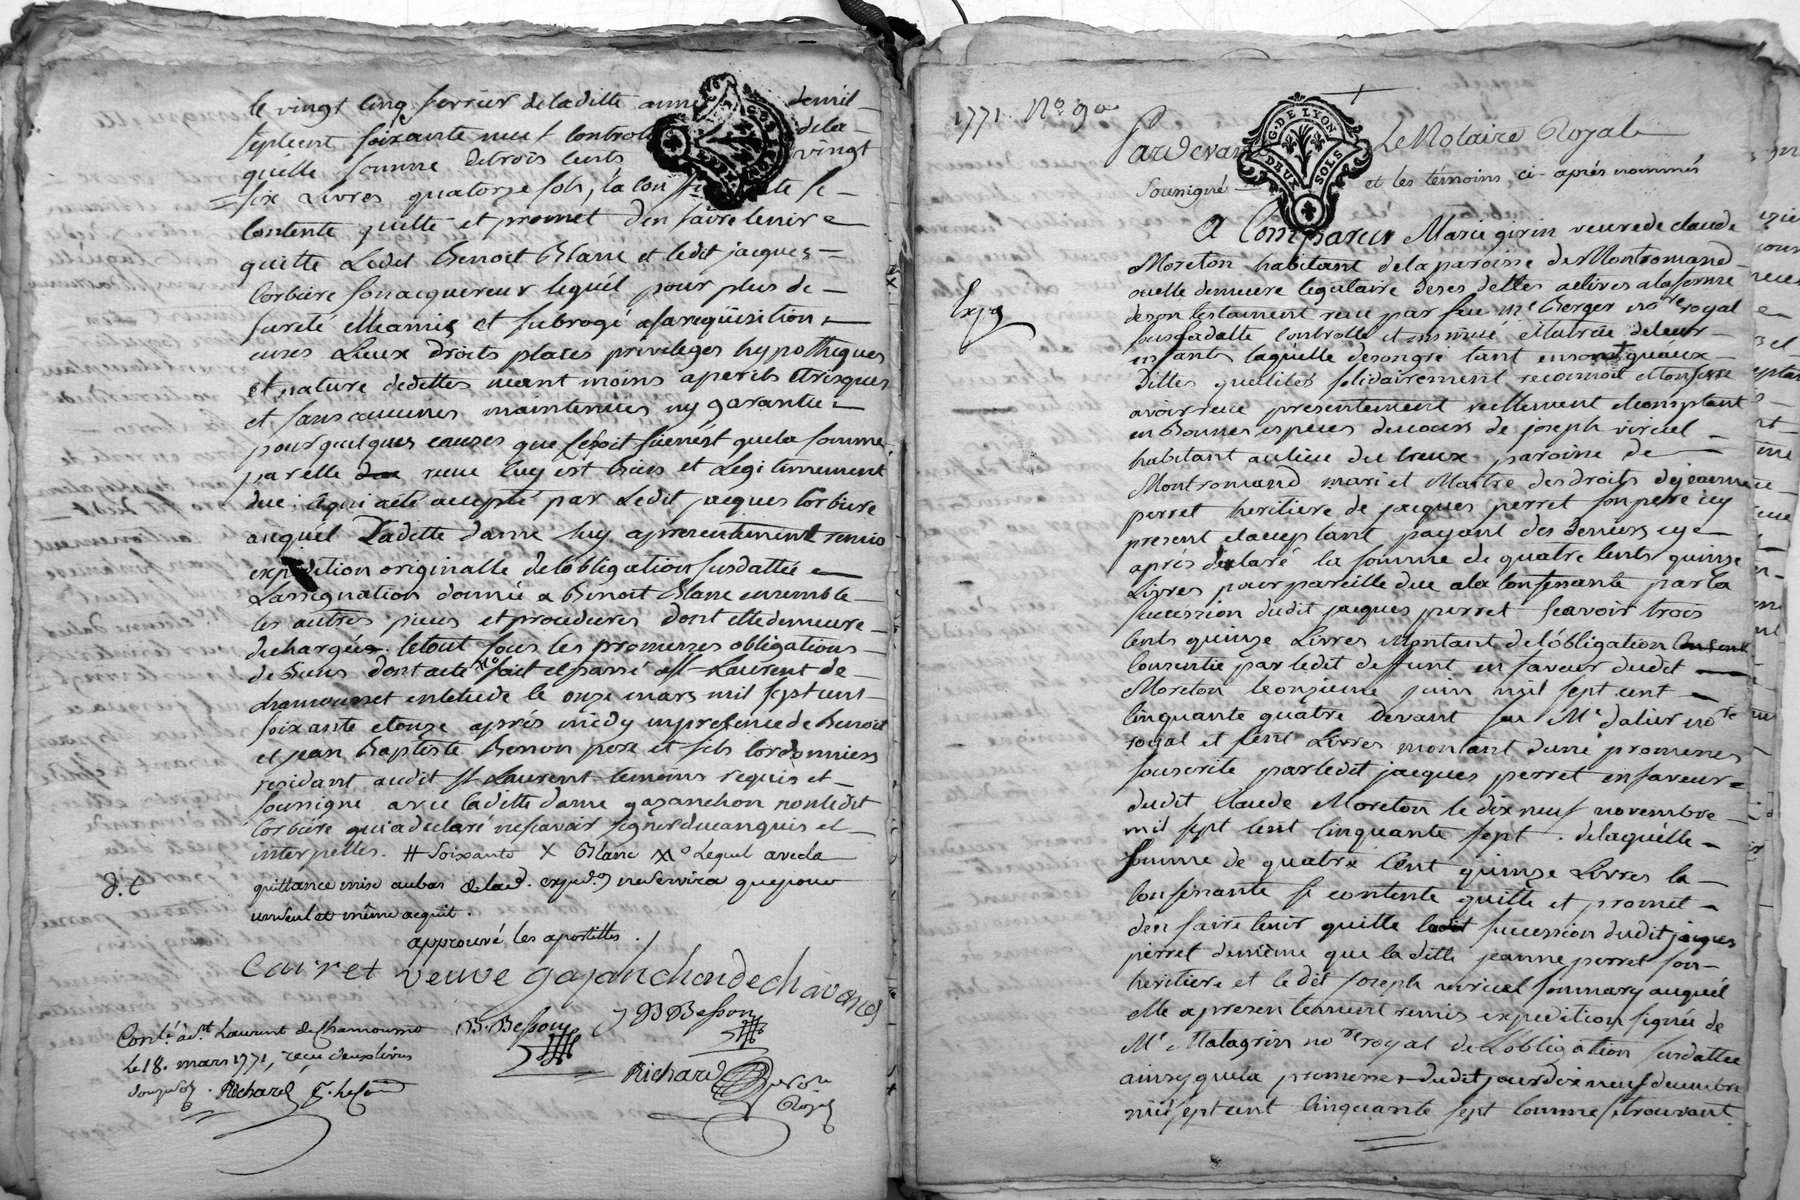 le vingt cinq fevrier de laditte année demil
septcent soixante neuf controllé de la
quelle somme detrois cents vingt
six Livres quatorze sols, la conf te se
contente quitte et promet d'en faire tenir
quitte Ledit Benoit Blanc et ledit jacques
Corbiere son acquereur lequel pour plus de
sureté elle a mis et subrogé a sa requisition
en ses Lieux droits places privileges hypotheques
et nature de dettes neant moins a perils et risques
et sans aucunes maintenues ny garantie
pour quelques causes que ce soit si en'est que la somme
par elle receue luy est bien et Legitimement
due ; ce qui a eté accepté par Ledit jacques Corbiere
auquel Laditte dame luy a presentement remis
expedition originalle de l'obligation susdattée
L'assignation donnée a Benoit Blanc ensemble
les autres pieces et procedures dont elle demeure
dechargée. le tout sous les promesses obligations
de biens dont acte fait et passé a St Laurent de
chamousset en l'etude le onze mars mil sept cent
soixante et onze après midy en presence de Benoit
et jean Baptiste Besson pere et fils Cordonniers
residant audit St Laurent temoins requis et
soussigné avec laditte dame gazanchon non ledit
Corbiere qui a declaré ne scavoir signer de ce enquis et
interpellés. # Soixante X Blanc Lequel avec la
quittance mise au bas de la d. exped.on ne servira que pour
d. C
un seul et même acquit.
approuvé les apostilles.
Cairet veuve gazanchon de chavanes
B. Besson J B Besson
Contlé à St Laurent de Chamousset
le 18. mars 1771, reçu deux livres
Richard
Richard Nore
Royal
1771. No 90
G. DE LYON
DEUX SOLS
Pardevant Le Notaire Royal
soussigné et les temoins ci-après nommés
A Comparu Marie girin veuve de claude
Moreton habitant de la paroisse de Montromand
quelle demeure legataire de ses dettes actives a la forme
de son testament receu par feu Me Berger nore royal
sus sa datte controllé et insinué et tutrice de leur
enfants laquelle de son gré tant en son nom qu'aux
dittes qualités solidairement reconnoit et confesse
avoir receu presentement reellement et comptant
en bonnes especes de cours de joseph viricel
habitant au lieu du creux paroisse de
Montromand mari et Maitre des droits de jeanne
perret heritiere de jacques perret son pere icy
present et acceptant payant des deniers cy
après declaré la somme de quatre cents quinze
Livres pour pareille due a la confessante par la
succession dudit jacques perret scavoir trois
cents quinze Livres montant de l'obligation
consentie par ledit deffunt en faveur dudit
Moreton le onzieme juin mil sept cent
cinquante quatre devant feu Me dalier nore
royal et cent Livres montant d'une promesses
souscrite par ledit jacques perret en faveur
dudit Claude Moreton le dix neuf novembre
mil sept cent cinquante sept. de laquelle
somme de quatre Cent quinze Livres la
confessante se contente quitte et promet
d'en faire tenir quitte succession dudit jacques
perret de même que laditte jeanne perret son
heritiere et ledit Joseph viricel son mary auquel
elle a presentement remis expedition signée de
Me Malagrin nore royal de L'obligation susdattée
ainsy que la promesse dudit jour dix neuf decembre
mil sept cent cinquante sept comme se trouvant